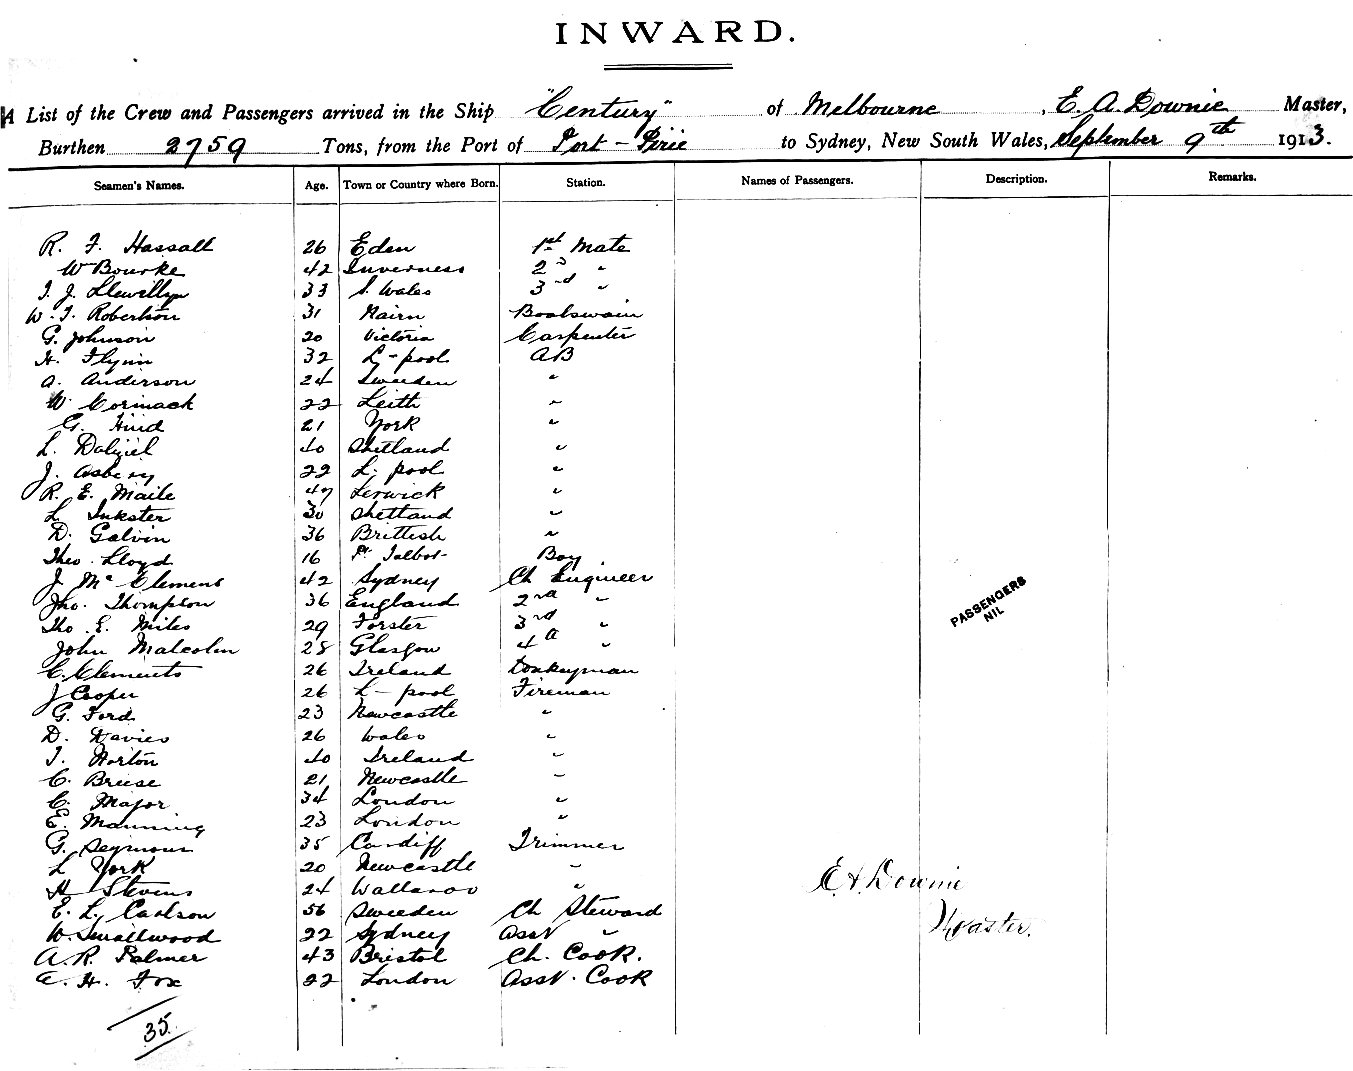 INWARD.
A List of the Crew and Passengers arrived in the Ship "Century" of Melbourne, E. A. Downie Master,
Burthen 2759 Tons, from the Port of Port-Pirie to Sydney, New South Wales, September 9th 1913.
Seamen's Names. Age. Town or Country where Born. Station. Names of Passengers. Description. Remarks.
R. F. Hassall 26 Eden 1st Mate
W Bourke 42 Inverness 2d "
T. J. Llewellyn 33 S. Wales 3rd "
W. J. Robertson 31 Nairn Boatswain
G. Johnson 20 Victoria Carpenter
H. Flynn 32 L-pool AB
A. Anderson 24 Sweeden "
W. Cormack 22 Leith "
G. Hind 21 York "
L. Dalziel 40 Shetland "
J. Asbery 22 L. pool "
R. E. Maile 47 Lerwick "
L. Inkster 30 Shetland "
D. Galvin 36 Brittish "
Theo. Lloyd 16 Pt. Talbot Boy
J. Mc Clement 42 Sydney Ch Engineer
Jho. Thompson 36 England 2nd "
Tho. E. Miles 29 Forster 3rd "
John Malcolm 28 Glasgow 4th "
C. Clements 26 Ireland Donkeyman
J Cooper 26 L-pool Fireman
G. Ford 23 Newcastle "
D. Davies 26 Wales "
T. Norton 40 Ireland "
C. Breese 21 Newcastle "
C. Major 34 London "
E. Manning 23 London "
G. Seymour 35 Cardiff Trimmer
L York 20 Newcastle "
H Stevens 24 Wallaroo "
E. L. Carlson 56 Sweeden Ch Steward
W. Smallwood 22 Sydney Asst "
A. R. Palmer 43 Bristol Ch. Cook.
A. H. Fox 22 London Asst. Cook
35.
PASSENGERS
NIL
E A Downie
Master.